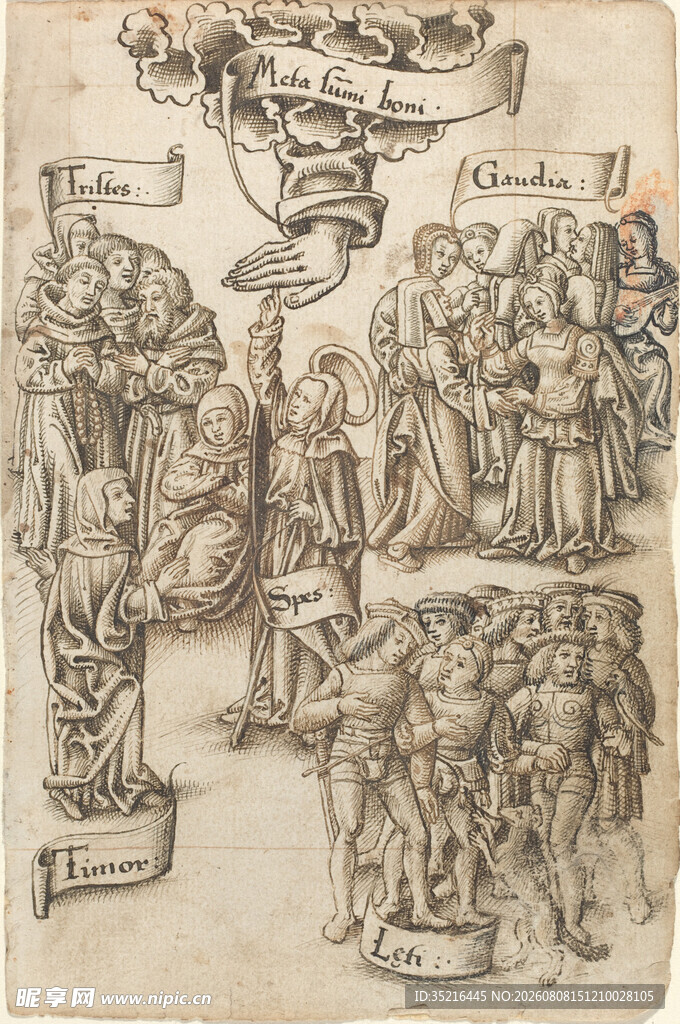 Meta sum̄i boni ·
Tristes :·
Gaudia :
Spes :
Timor :
Lęti :·
昵享网 www.nipic.cn
ID:35216445 NO:20260808151210028105